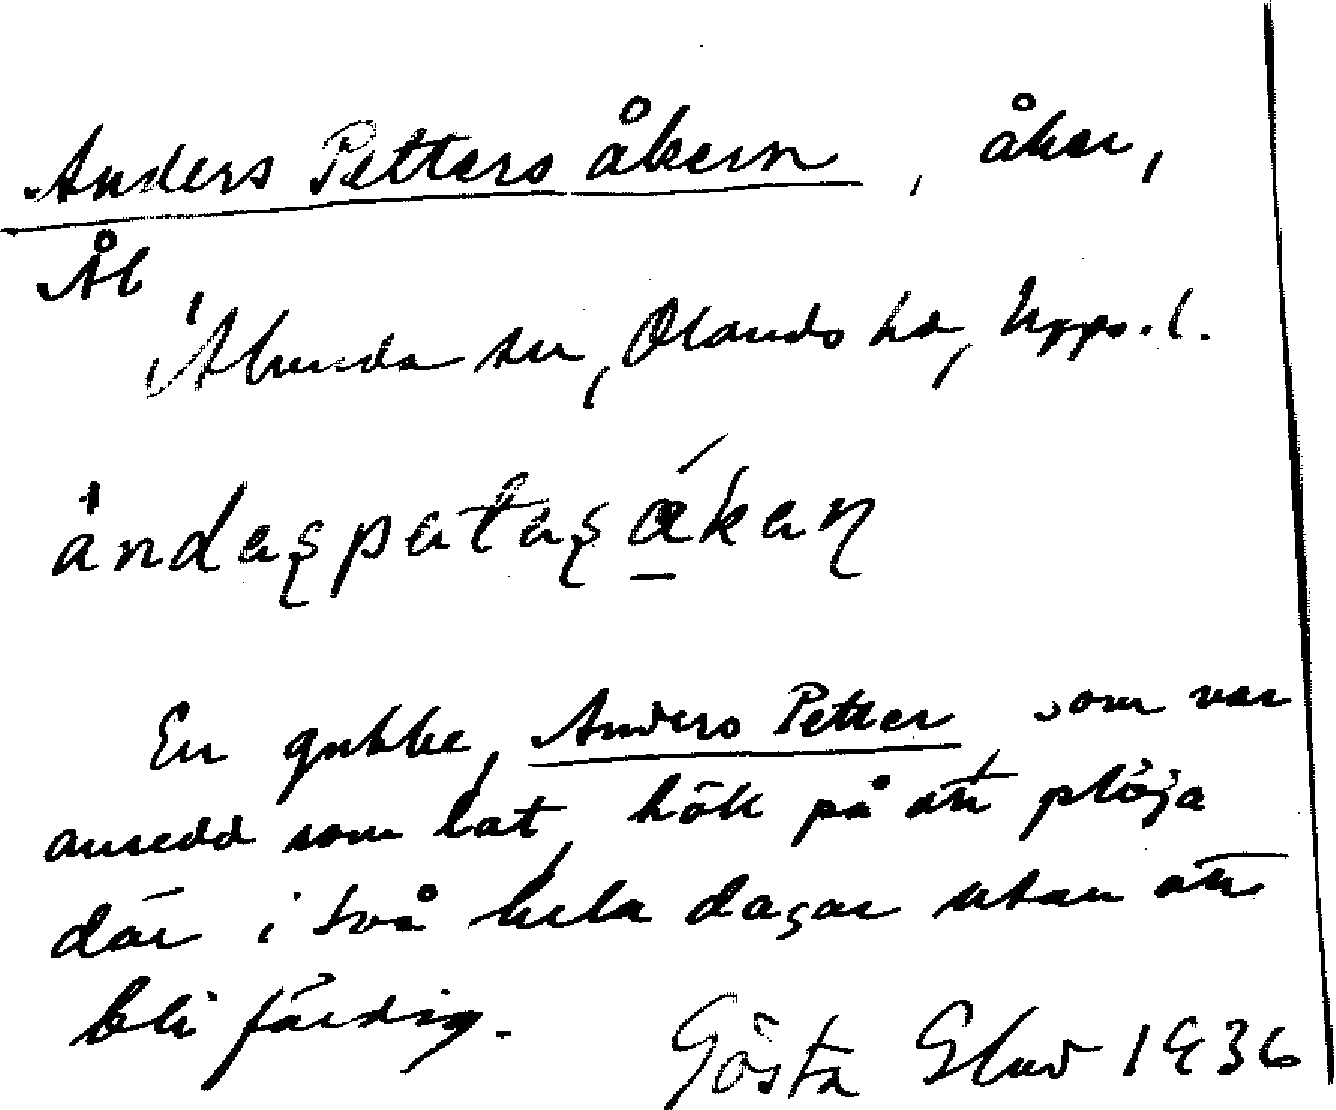 Anders Petters åkern, åker,
Ål
Ålunda sn, Olands hd, Upps. l.
En gubbe, Anders Petter, som var
ansedd som lat, höll på att plöja
där i två hela dagar utan att
bli färdig.
Gösta 1936